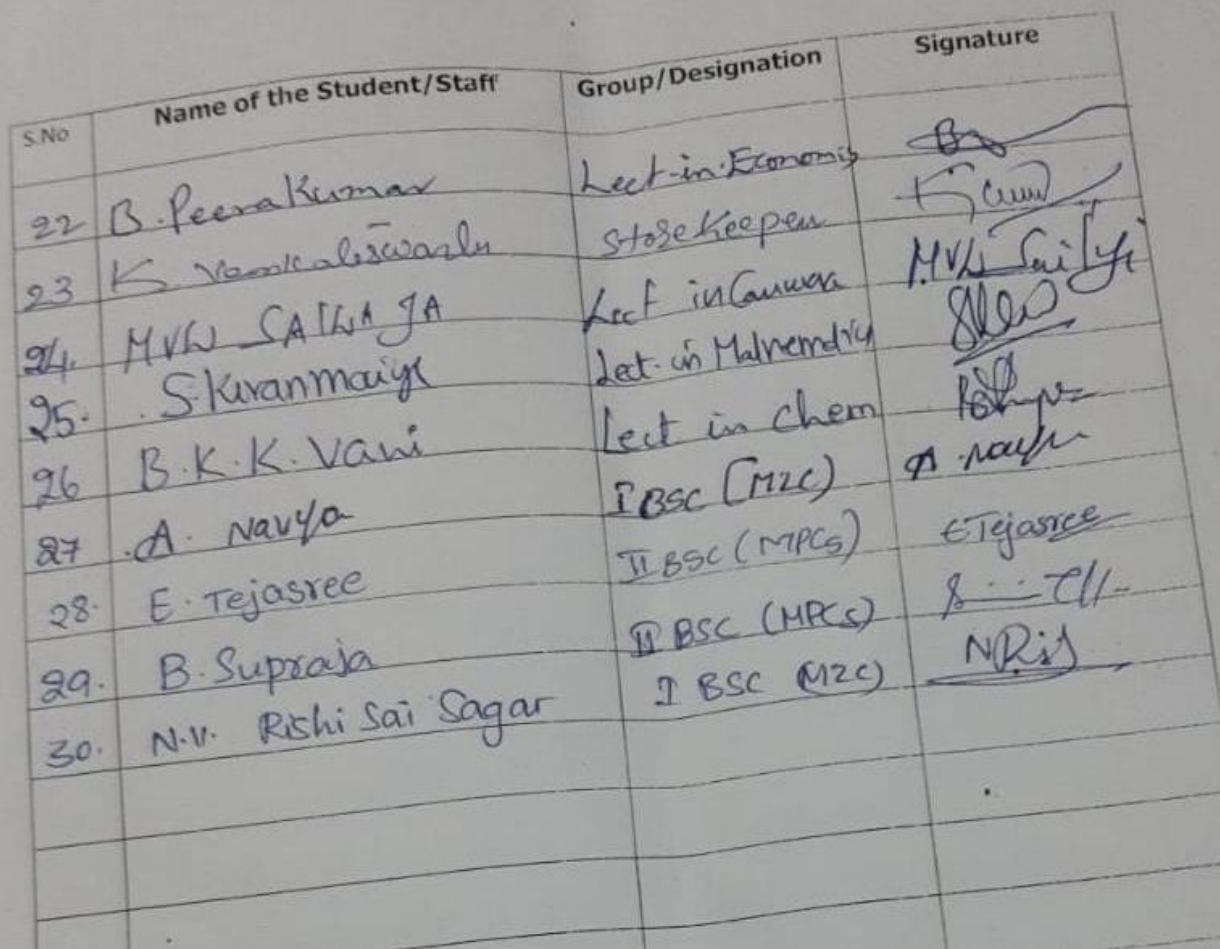 S.No Name of the Student/Staff Group/Designation Signature
22 B. Peera Kumar Lect-in-Economis
23 K Venkateswarlu Store Keeper
24. MVN SAILAJA Lect in
25. S. Kiranmaiyi Lect. in
26 B. K. K. Vani Lect in Chem
27 A. Navya I BSC (MZC) A. Navya
28. E. Tejasree II BSC (MPCs) E Tejasree
29. B. Supraja II BSC (MPCs)
30. N.V. Rishi Sai Sagar I BSC (MZC) NRis